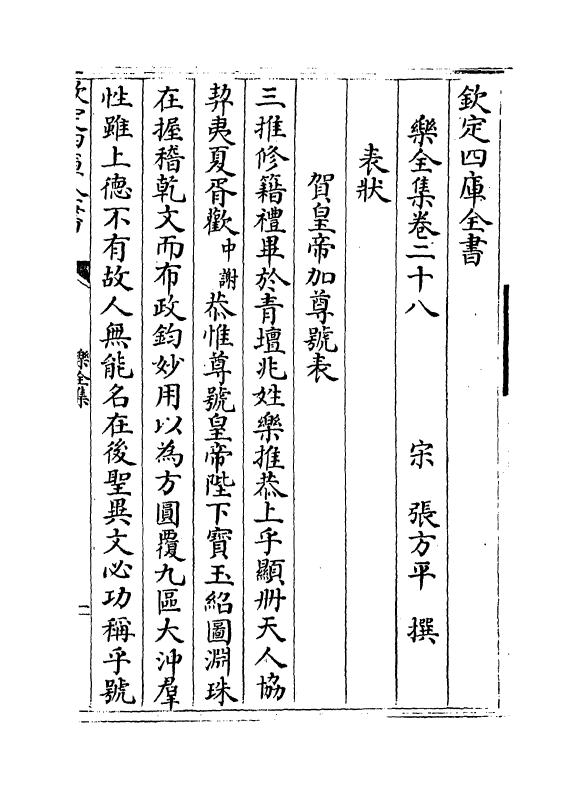 欽定四庫全書
樂全集卷二十八
宋　張方平　撰
表狀
賀皇帝加尊號表
三推修籍禮畢於青壇兆姓樂推恭上乎顯册天人協
契夷夏胥歡中謝恭惟尊號皇帝陛下寳玉紹圖淵珠
在握稽乾文而布政鈞妙用以為方圓覆九區大沖羣
性雖上德不有故人無能名在後聖異文必功稱乎號
樂全集
一